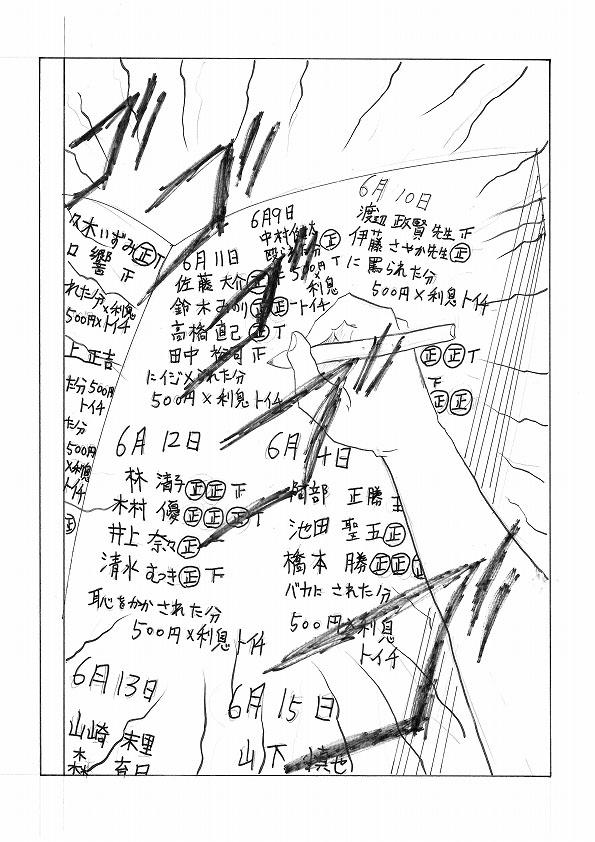 6月10日
渡辺 政賢先生 正
伊藤 さやか先生 正
に罵られた分
500円×利息トイチ
6月9日
中村
500円
利息
トイチ
6月11日
佐藤 大介 正
鈴木 みのり 正正一
高橋 直己 正T
田中 裕司 正
にイジメられた分
500円×利息トイチ
久木いずみ正T
口 響 正
れた分×利息
500円×トイチ
上 正吉
た分500円
トイチ
た分
500円
×利息
トイチ
正
正正T
下
正正
6月12日
林 清子正正下
木村 優正正正T
井上 奈々正一
清水 むつき正下
恥をかかされた分
500円×利息トイチ
6月14日
阿部 正勝
池田 聖五正
橋本 勝正正
バカにされた分
500円×利息
トイチ
6月13日
山崎 末里
森
6月15日
山下 慎也